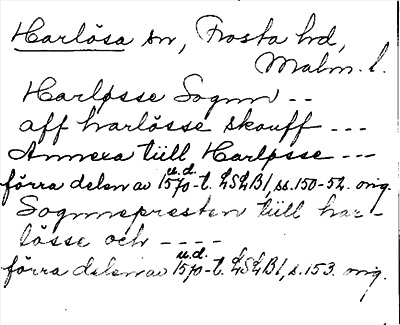 Harlösa sn, Frosta hd,
Malm. l.
Harløsse Sognn --
aff harløsse skouff ---
Annexa tiill Harløsse ---
förra delen av u.d. 1570-t. LSLB1, ss. 150-52. orig.
Sognnepresten tiill har-
løsse och ----
förra delen av u.d. 1570-t. LSLB1, s. 153. orig.